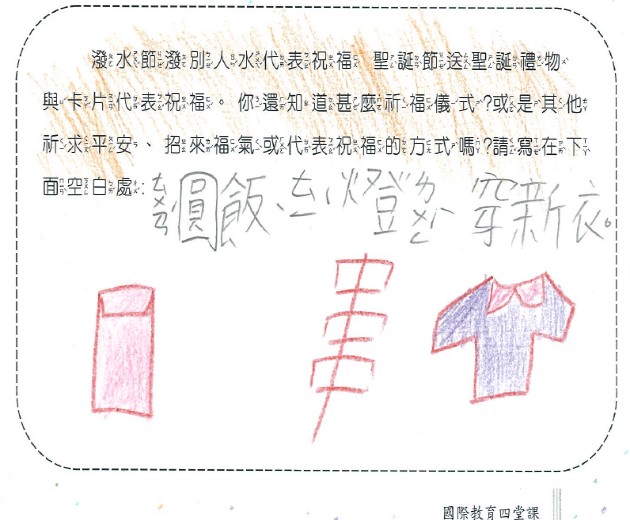 潑水節潑別人水代表祝福,聖誕節送聖誕禮物
與卡片代表祝福。你還知道甚麼祈福儀式?或是其他
祈求平安、招來福氣或代表祝福的方式嗎?請寫在下
面空白處:ㄊㄨㄢˊ圓飯、ㄊㄧˊ燈ㄌㄨㄥˊ、穿新衣。
國際教育四堂課